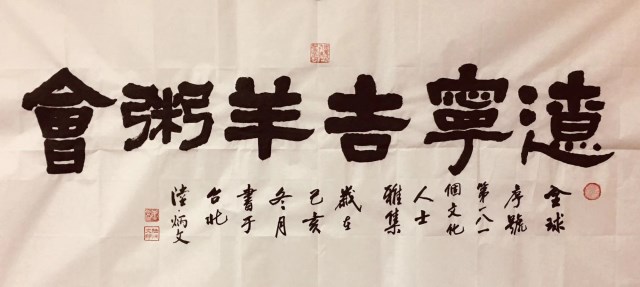 遼寧吉羊粥會
全球
序號
第一八一
個文化
人士
雅集
歲在
己亥
冬月
書于
台北
陸炳文